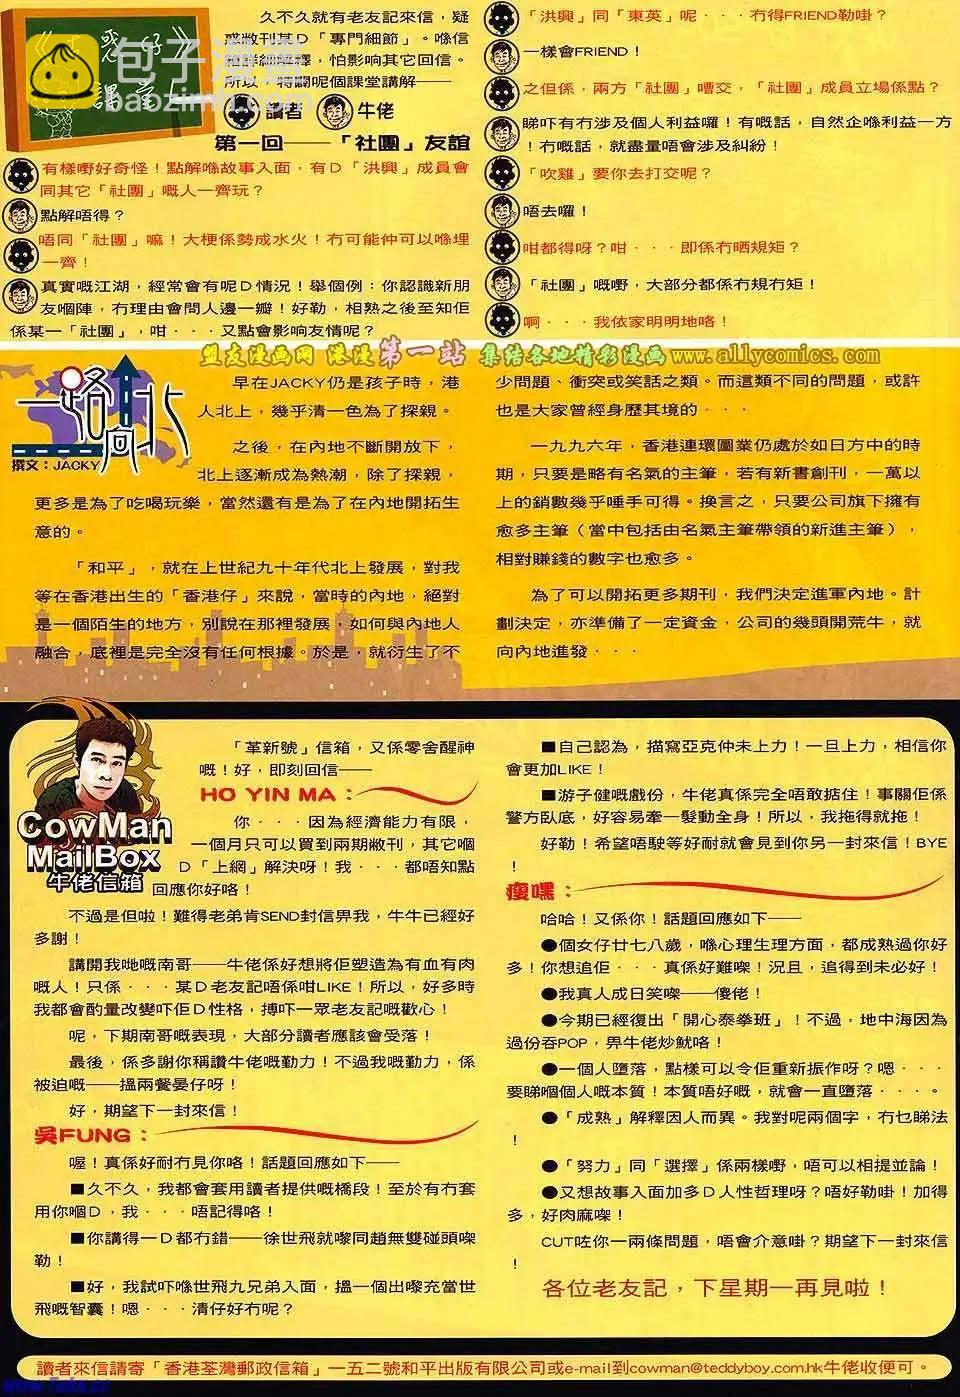 久不久就有老友記來信，疑
惑敝刊某D「專門細節」。喺信
所以，特闢呢個課堂講解——
讀者
牛佬
第一回——「社團」友誼
有樣嘢好奇怪！點解喺故事入面，有D「洪興」成員會
同其它「社團」嘅人一齊玩？
點解唔得？
唔同「社團」嘛！大梗係勢成水火！冇可能仲可以喺埋
一齊！
真實嘅江湖，經常會有呢D情況！舉個例：你認識新朋
友嗰陣，冇理由會問人邊一瓣！好勒，相熟之後至知佢
係某一「社團」，咁．．．又點會影响友情呢？
「洪興」同「東英」呢．．．冇得FRIEND勒啩？
一樣會FRIEND！
之但係，兩方「社團」嘈交，「社團」成員立場係點？
睇吓有冇涉及個人利益囉！有嘅話，自然企喺利益一方
！冇嘅話，就盡量唔會涉及糾紛！
「吹雞」要你去打交呢？
唔去囉！
咁都得呀？咁．．．即係冇晒規矩？
「社團」嘅嘢，大部分都係冇規冇矩！
啊．．．我依家明明地咯！
包子漫畫
baozimh.com
盟友漫画网 港漫第一站 集结各地精彩漫画 www.allycomics.com
一路向北
撰文：JACKY
早在JACKY仍是孩子時，港
人北上，幾乎清一色為了探親。
之後，在內地不斷開放下，
北上逐漸成為熱潮，除了探親，
更多是為了吃喝玩樂，當然還有是為了在內地開拓生
意的。
「和平」，就在上世紀九十年代北上發展，對我
等在香港出生的「香港仔」來說，當時的內地，絕對
是一個陌生的地方，別說在那裡發展，如何與內地人
融合，底裡是完全沒有任何根據。於是，就衍生了不
少問題、衝突或笑話之類。而這類不同的問題，或許
也是大家曾經身歷其境的．．．
一九九六年，香港連環圖業仍處於如日方中的時
期，只要是略有名氣的主筆，若有新書創刊，一萬以
上的銷數幾乎唾手可得。換言之，只要公司旗下擁有
愈多主筆（當中包括由名氣主筆帶領的新進主筆），
相對賺錢的數字也愈多。
為了可以開拓更多期刊，我們決定進軍內地。計
劃決定，亦準備了一定資金，公司的幾頭開荒牛，就
向內地進發．．．
CowMan
MailBox
牛佬信箱
「革新號」信箱，又係零舍醒神
嘅！好，即刻回信——
HO YIN MA：
你．．．因為經濟能力有限，
一個月只可以買到兩期敝刊，其它嗰
D「上網」解決呀！我．．．都唔知點
回應你好咯！
不過是但啦！難得老弟肯SEND封信畀我，牛牛已經好
多謝！
講開我哋嘅南哥——牛佬係好想將佢塑造為有血有肉
嘅人！只係．．．某D老友記唔係咁LIKE！所以，好多時
我都會酌量改變吓佢D性格，搏吓一眾老友記嘅歡心！
呢，下期南哥嘅表現，大部分讀者應該會受落！
最後，係多謝你稱讚牛佬嘅勤力！不過我嘅勤力，係
被迫嘅——搵兩餐晏仔呀！
好，期望下一封來信！
吳FUNG：
喔！真係好耐冇見你咯！話題回應如下——
■久不久，我都會套用讀者提供嘅橋段！至於有冇套
用你嗰D，我．．．唔記得咯！
■你講得一D都冇錯——徐世飛就嚟同趙無雙碰頭㗎
勒！
■好，我試吓喺世飛九兄弟入面，搵一個出嚟充當世
飛嘅智囊！嗯．．．清仔好冇呢？
■自己認為，描寫亞克仲未上力！一旦上力，相信你
會更加LIKE！
■游子健嘅戲份，牛佬真係完全唔敢掂住！事關佢係
警方臥底，好容易牽一髮動全身！所以，我拖得就拖！
好勒！希望唔駛等好耐就會見到你另一封來信！BYE
！
瘦嘿：
哈哈！又係你！話題回應如下——
●個女仔廿七八歲，喺心理生理方面，都成熟過你好
多！你想追佢．．．真係好難㗎！況且，追得到未必好！
●我真人成日笑㗎——傻佬！
●今期已經復出「開心泰拳班」！不過，地中海因為
過份吞POP，畀牛佬炒魷咯！
●一個人墮落，點樣可以令佢重新振作呀？嗯．．．
要睇嗰個人嘅本質！本質唔好嘅，就會一直墮落．．．．。
●「成熟」解釋因人而異。我對呢兩個字，冇乜睇法
！
●「努力」同「選擇」係兩樣嘢，唔可以相提並論！
●又想故事入面加多D人性哲理呀？唔好勒啩！加得
多，好肉麻㗎！
CUT咗你一兩條問題，唔會介意啩？期望下一封來信
！
各位老友記，下星期一再見啦！
讀者來信請寄「香港荃灣郵政信箱」一五二號和平出版有限公司或e-mail到cowman@teddyboy.com.hk牛佬收便可。